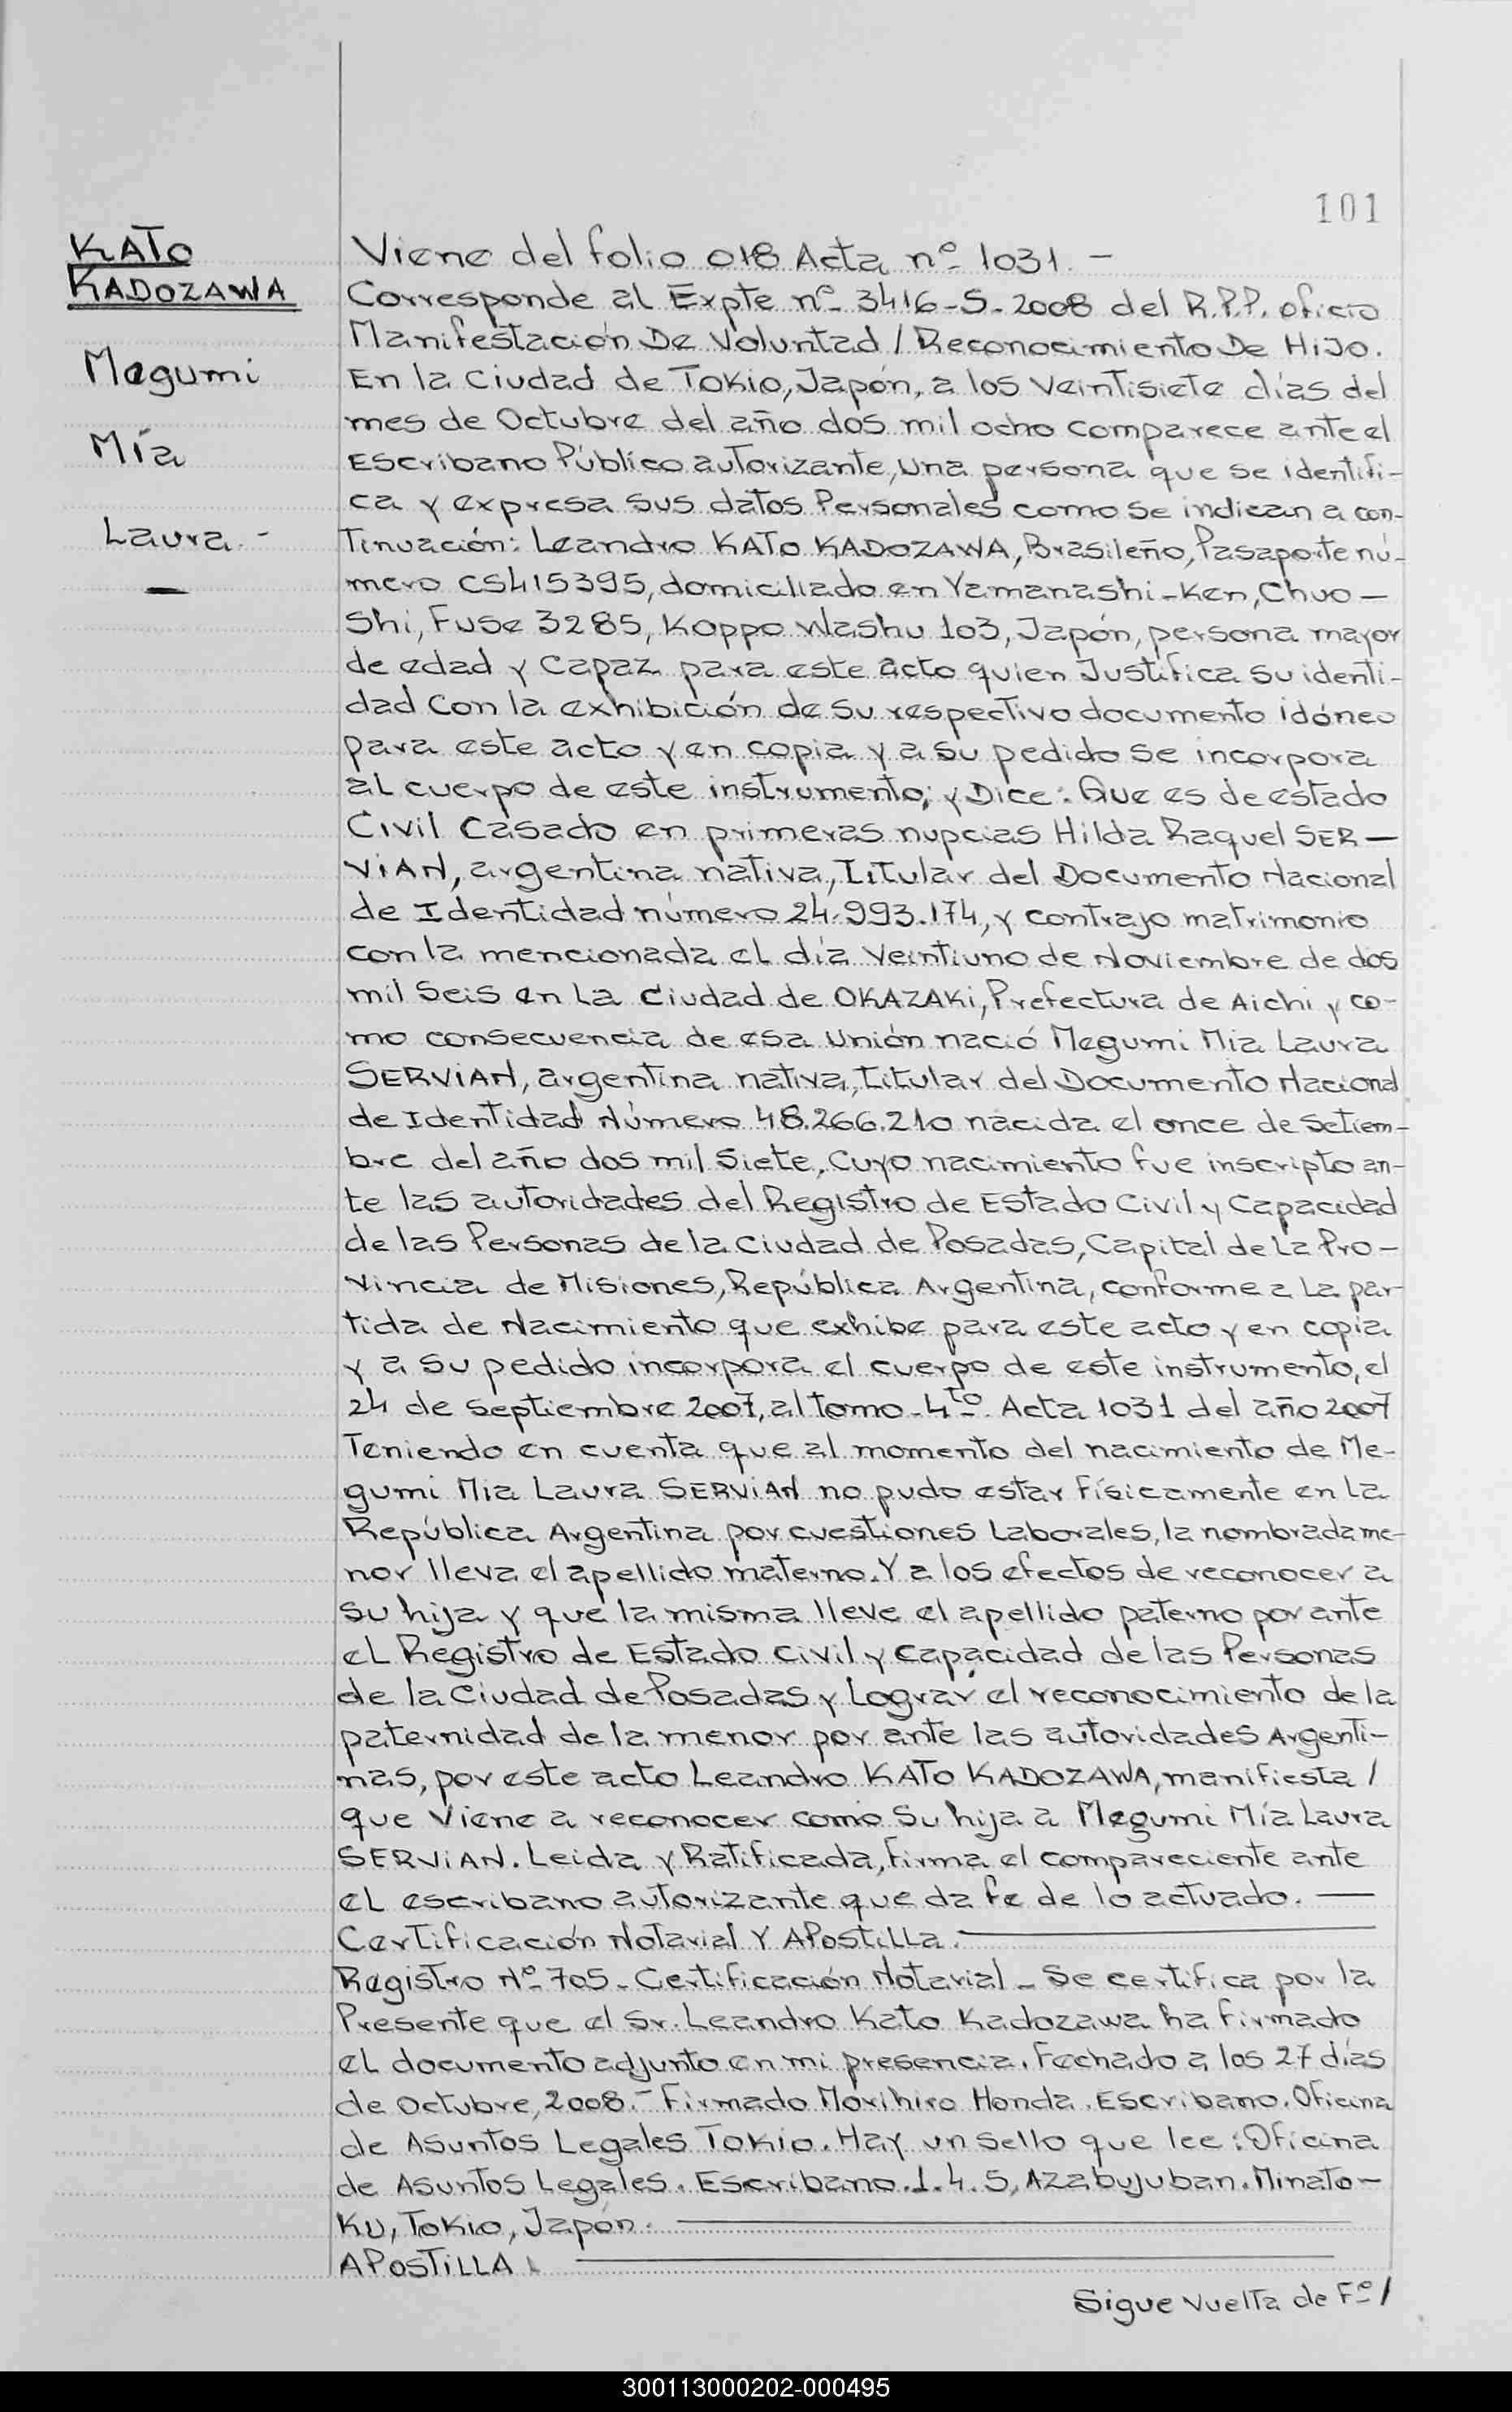 101
KATO
KADOZAWA
Megumi
Mía
Laura.-
Viene del folio 018 Acta nº 1031.-
Corresponde al Expte nº 3416-S-2008 del R.P.P. oficio
Manifestación De Voluntad / Reconocimiento De Hijo.
En la Ciudad de Tokio, Japón, a los Veintisiete días del
mes de Octubre del año dos mil ocho comparece ante el
Escribano Público autorizante, una persona que se identifi-
ca y expresa sus datos Personales como se indican a con-
tinuación: Leandro KATO KADOZAWA, Brasileño, Pasaporte nú-
mero CS415395, domiciliado en Yamanashi-Ken, Chuo-
Shi, Fuse 3285, Koppo Washu 103, Japón, persona mayor
de edad y Capaz para este acto quien Justifica su identi-
dad Con la exhibición de su respectivo documento idóneo
para este acto y en copia y a su pedido se incorpora
al cuerpo de este instrumento; y Dice: Que es de estado
Civil Casado en primeras nupcias Hilda Raquel SER-
VIAN, argentina nativa, Titular del Documento Nacional
de Identidad número 24.993.174, y contrajo matrimonio
con la mencionada el día Veintiuno de Noviembre de dos
mil Seis en La Ciudad de OKAZAKi, Prefectura de Aichi y co-
mo consecuencia de esa Unión nació Megumi Mia Laura
SERVIAN, argentina nativa, titular del Documento Nacional
de Identidad Número 48.266.210 nacida el once de Setiem-
bre del año dos mil Siete, Cuyo nacimiento fue inscripto an-
te las autoridades del Registro de Estado Civil y Capacidad
de las Personas de la Ciudad de Posadas, Capital de La Pro-
vincia de Misiones, República Argentina, conforme a La par-
tida de Nacimiento que exhibe para este acto y en copia
y a su pedido incorpora el cuerpo de este instrumento, el
24 de Septiembre 2007, al Tomo-4to. Acta 1031 del año 2007
Teniendo en cuenta que al momento del nacimiento de Me-
gumi Mia Laura SERVIAN no pudo estar físicamente en La
República Argentina por cuestiones Laborales, la nombrada me-
nor lleva el apellido materno. Y a los efectos de reconocer a
su hija y que la misma lleve el apellido paterno por ante
el Registro de Estado Civil y Capacidad de las Personas
de la Ciudad de Posadas y Lograr el reconocimiento de la
paternidad de la menor por ante las autoridades Argenti-
nas, por este acto Leandro KATO KADOZAWA, manifiesta /
que Viene a reconocer como Su hija a Megumi Mía Laura
SERVIAN. Leida y Ratificada, firma el compareciente ante
el escribano autorizante que da fe de lo actuado.
Certificación Notarial Y APostilla.
Registro Nº 705- Certificación Notarial - Se certifica por la
Presente que el Sr. Leandro Kato Kadozawa ha firmado
el documento adjunto en mi presencia. Fechado a los 27 días
de Octubre, 2008.- Firmado Morihiro Honda. Escribano. Oficina
de Asuntos Legales Tokio. Hay un sello que lee: Oficina
de Asuntos Legales. Escribano. 1. 4. 5, Azabujuban. Minato-
Ku, Tokio, Japón.
APOSTiLLA
Sigue vuelta de Fº/
300113000202-000495